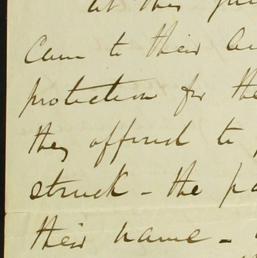 at this
came to their
protection for the
they offered to
struck - the
their name -